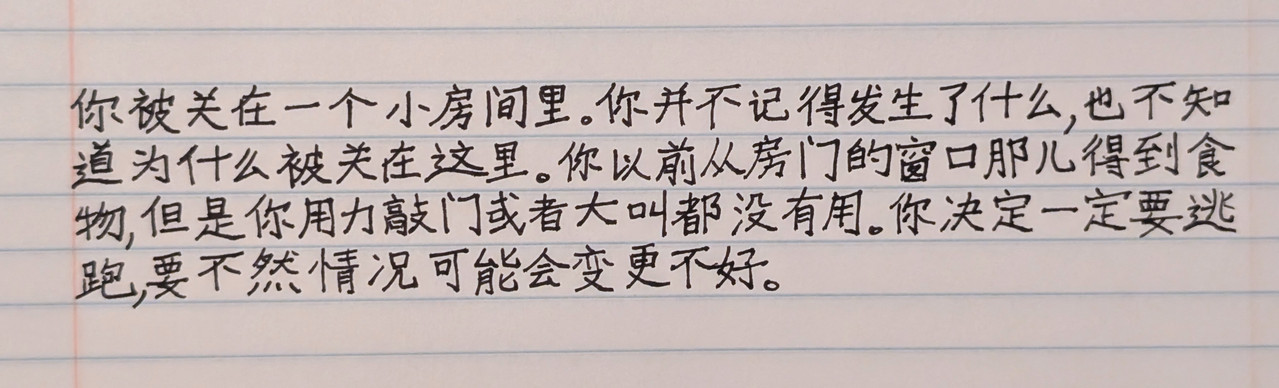 你被关在一个小房间里。你并不记得发生了什么,也不知
道为什么被关在这里。你以前从房门的窗口那儿得到食
物,但是你用力敲门或者大叫都没有用。你决定一定要逃
跑,要不然情况可能会变更不好。